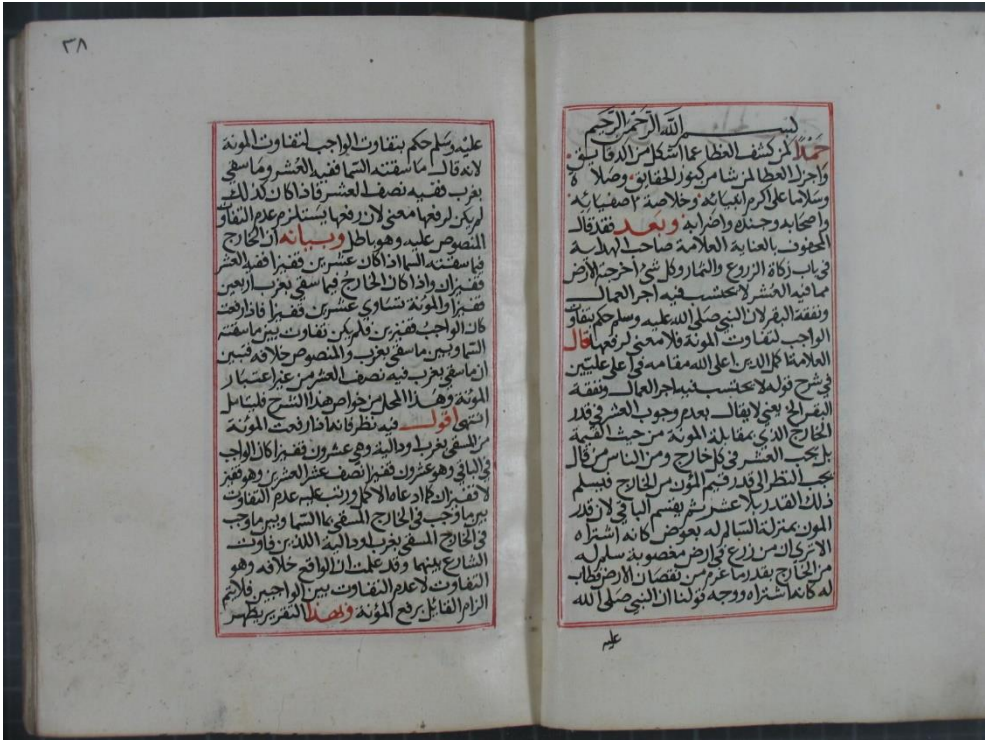 بسم الله الرحمن الرحيم
حمدا لمن كشف الغطا عما اشكل من الدقايق
واجزل العطا لمن شا من كنوز الحقايق وصلاة
وسلاما على اكرم انبيائه وخلاصة اصفيائه
واصحابه وجنده واضرابه وبعد فقد قال
المحفوف بالعناية العلامة صاحب الهداية
في باب زكاة الزروع والثمار وكل شئ اخرجته الارض
مما فيه العشر لا يحتسب فيه اجر العمال
ونفقة البقر لان النبي صلى الله عليه وسلم حكم بتفاوت
الواجب لتفاوت المونة فلا معنى لرفعها قال
العلامة اكمل الدين اعلى الله مقامه في اعلى عليين
في شرح قوله لا يحتسب فيه اجر العمال ونفقة
البقر الخ يعني لا يقال بعدم وجوب العشر في قدر
الخارج الذي بمقابلة المونة من حيث القيمة
بل يجب العشر في كل خارج ومن الناس من قال
يجب النظر الى قدر قيم المون من الخارج فيسلم
ذلك القدر بلا عشر ثم يقسم الباقي لان قدر
المون بمنزلة السالم له بعوض كانه اشتراه
الا ترى ان من زرع في ارض مغصوبة سلم له
من الخارج بقدر ما غرم من نقصان الارض وطاب
له كانه اشتراه ووجه قولنا ان النبي صلى الله
عليه
٣٨
عليه وسلم حكم بتفاوت الواجب لتفاوت المونة
لانه قال ما سقته السما ففيه العشر وما سقي
بغرب ففيه نصف العشر فاذا كان كذلك
لم يكن لرفعها معنى لان رفعها يستلزم عدم التفاوت
المنصوص عليه وهو باطل وبيانه ان الخارج
فيما سقته السما اذا كان عشرين قفيزا ففيه العشر
قفيزان واذا كان الخارج فيما سقي بغرب اربعين
قفيزا والمونة تساوي عشرين قفيزا فاذا رفعت
كان الواجب قفيزين فلم يكن تفاوت بين ما سقته
السما وبين ما سقي بغرب والمنصوص خلافه فتبين
ان ما سقي بغرب فيه نصف العشر من غير اعتبار
المؤنة وهذا المحل من خواص هذا الشرح فليتامل
انتهى اقول فيه نظر فانه اذا رفعت المؤنة
من المسقي بغرب او دالية وهي عشرون قفيزا كان الواجب
في الباقي وهو عشرون قفيزا نصف عشر العشرين وهو قفيز
لا قفيزان كما ادعاه الاكمل ورتب عليه عدم التفاوت
بين ما وجب في الخارج المسقي بما السما وبين ما وجب
في الخارج المسقي بغرب او دالية اللذين فاوت
الشارع بينهما وقد علمت ان الواقع خلافه وهو
التفاوت لا عدم التفاوت بين الواجبين فلا يتم
الزام القايل برفع المؤنة وبهذا التقرير يظهر